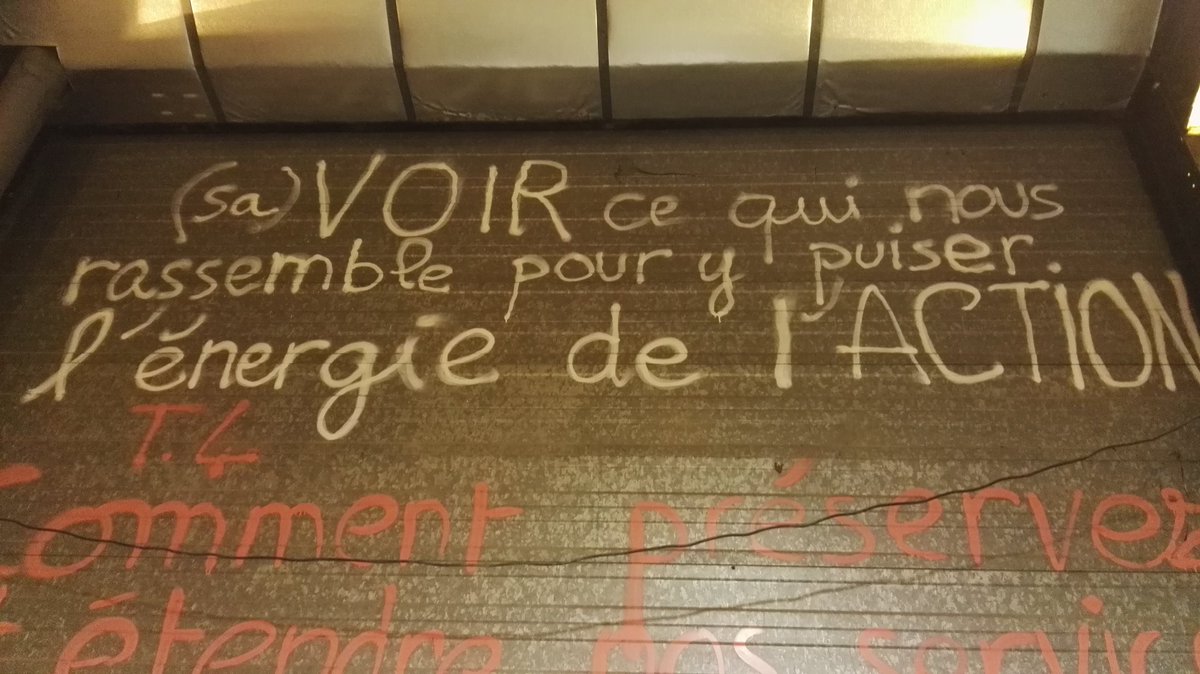 (sa)VOIR ce qui nous
rassemble pour y puiser
l'énergie de l'ACTION
T.4
Comment préserver
étendre nos servic